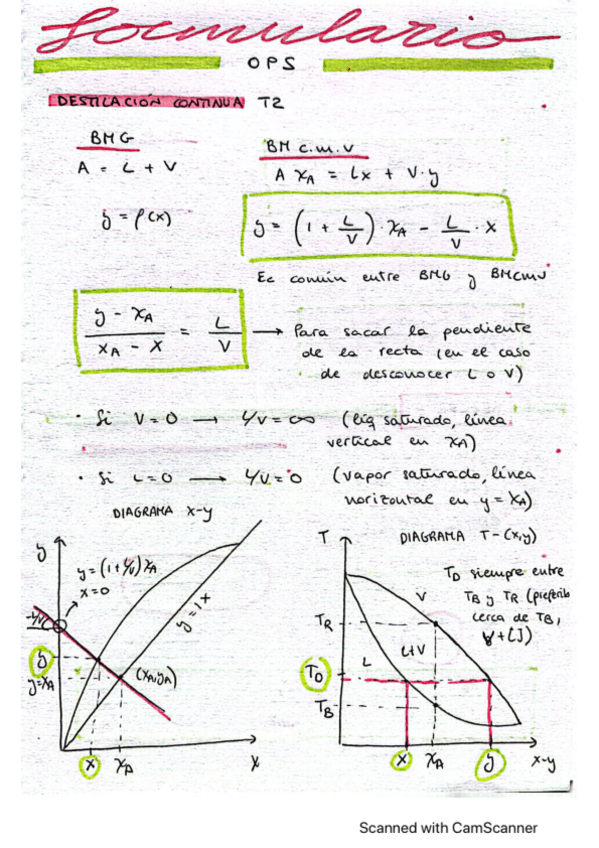 Formulario
OPS
DESTILACIÓN CONTINUA T2
BMG
A = L + V
BM c.m.v
A xA = Lx + V·y
y = f(x)
y = (1 + L/V) · xA - L/V · x
Ec común entre BMG y BMcmv
(y - xA)/(xA - x) = L/V → Para sacar la pendiente
de la recta (en el caso
de desconocer L o V)
· Si V=0 → L/V = ∞ (liq saturado, línea
vertical en xA)
· Si L=0 → L/V = 0 (vapor saturado, línea
horizontal en y = xA)
DIAGRAMA x-y
y
y = (1+L/V) xA
x=0
y=x
-L/V
y
y=xA
(xA,yA)
x
xA
x
DIAGRAMA T-(x,y)
T
TD siempre entre
TB y TR (preferib
cerca de TB,
V
TR
L+V
L
TD
TB
x
xA
y
x-y
Scanned with CamScanner